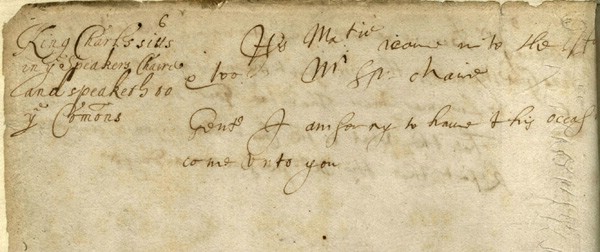 King Charles sitts
in ye Speakers Chaire
and speaketh to
ye Comons
His Matie came in to the
& took Mr Sp: chaire
Gent: I am sorry to haue this occas
come vnto you